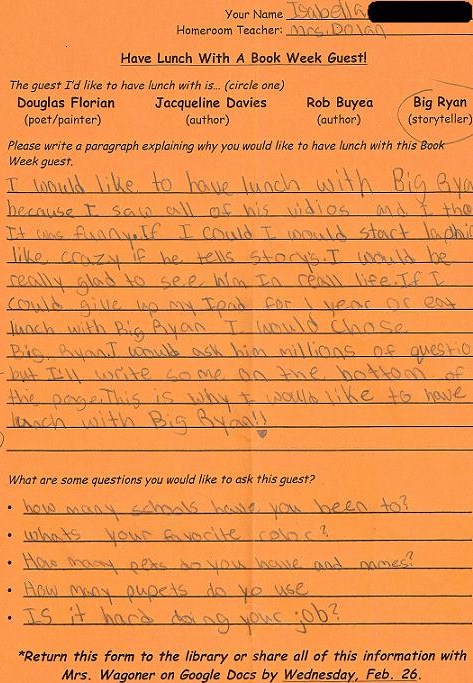 Your Name Isabella
Homeroom Teacher: Mrs. Dolan
Have Lunch With A Book Week Guest!
The guest I'd like to have lunch with is... (circle one)
Douglas Florian Jacqueline Davies Rob Buyea Big Ryan
(poet/painter) (author) (author) (storyteller)
Please write a paragraph explaining why you would like to have lunch with this Book
Week guest.
I would like to have lunch with Big Rya
because I saw all of his vidios and I tho
It was funny. If I could I would start laphi
like crazy if he tells storys. I would be
really glad to see him In reall life. If I
could give up my Ipad for 1 year or eat
lunch with Big Ryan I would chose
Big Ryan. I would ask him millions of questio
but I'll write some on the bottom of
the page. This is why I would like to have
lunch with Big Ryan!!
What are some questions you would like to ask this guest?
• how many schools have you been to?
• whats your favorite color?
• How many pets do you have and names?
• How many pupets do yo use
• IS it hard doing your job?
*Return this form to the library or share all of this information with
Mrs. Wagoner on Google Docs by Wednesday, Feb. 26.